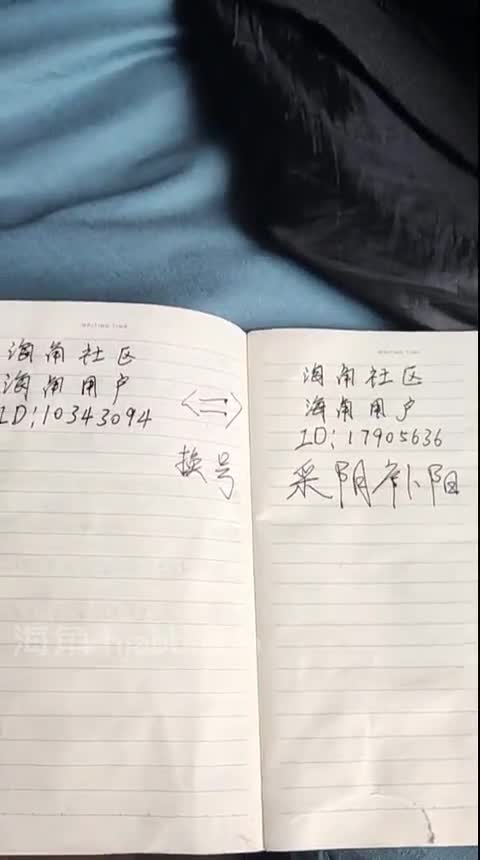 WRITING TIME
海角社区
海角用户
ID:10343094
<=>
换号
WRITING TIME
海角社区
海角用户
ID:17905636
采阴补阳